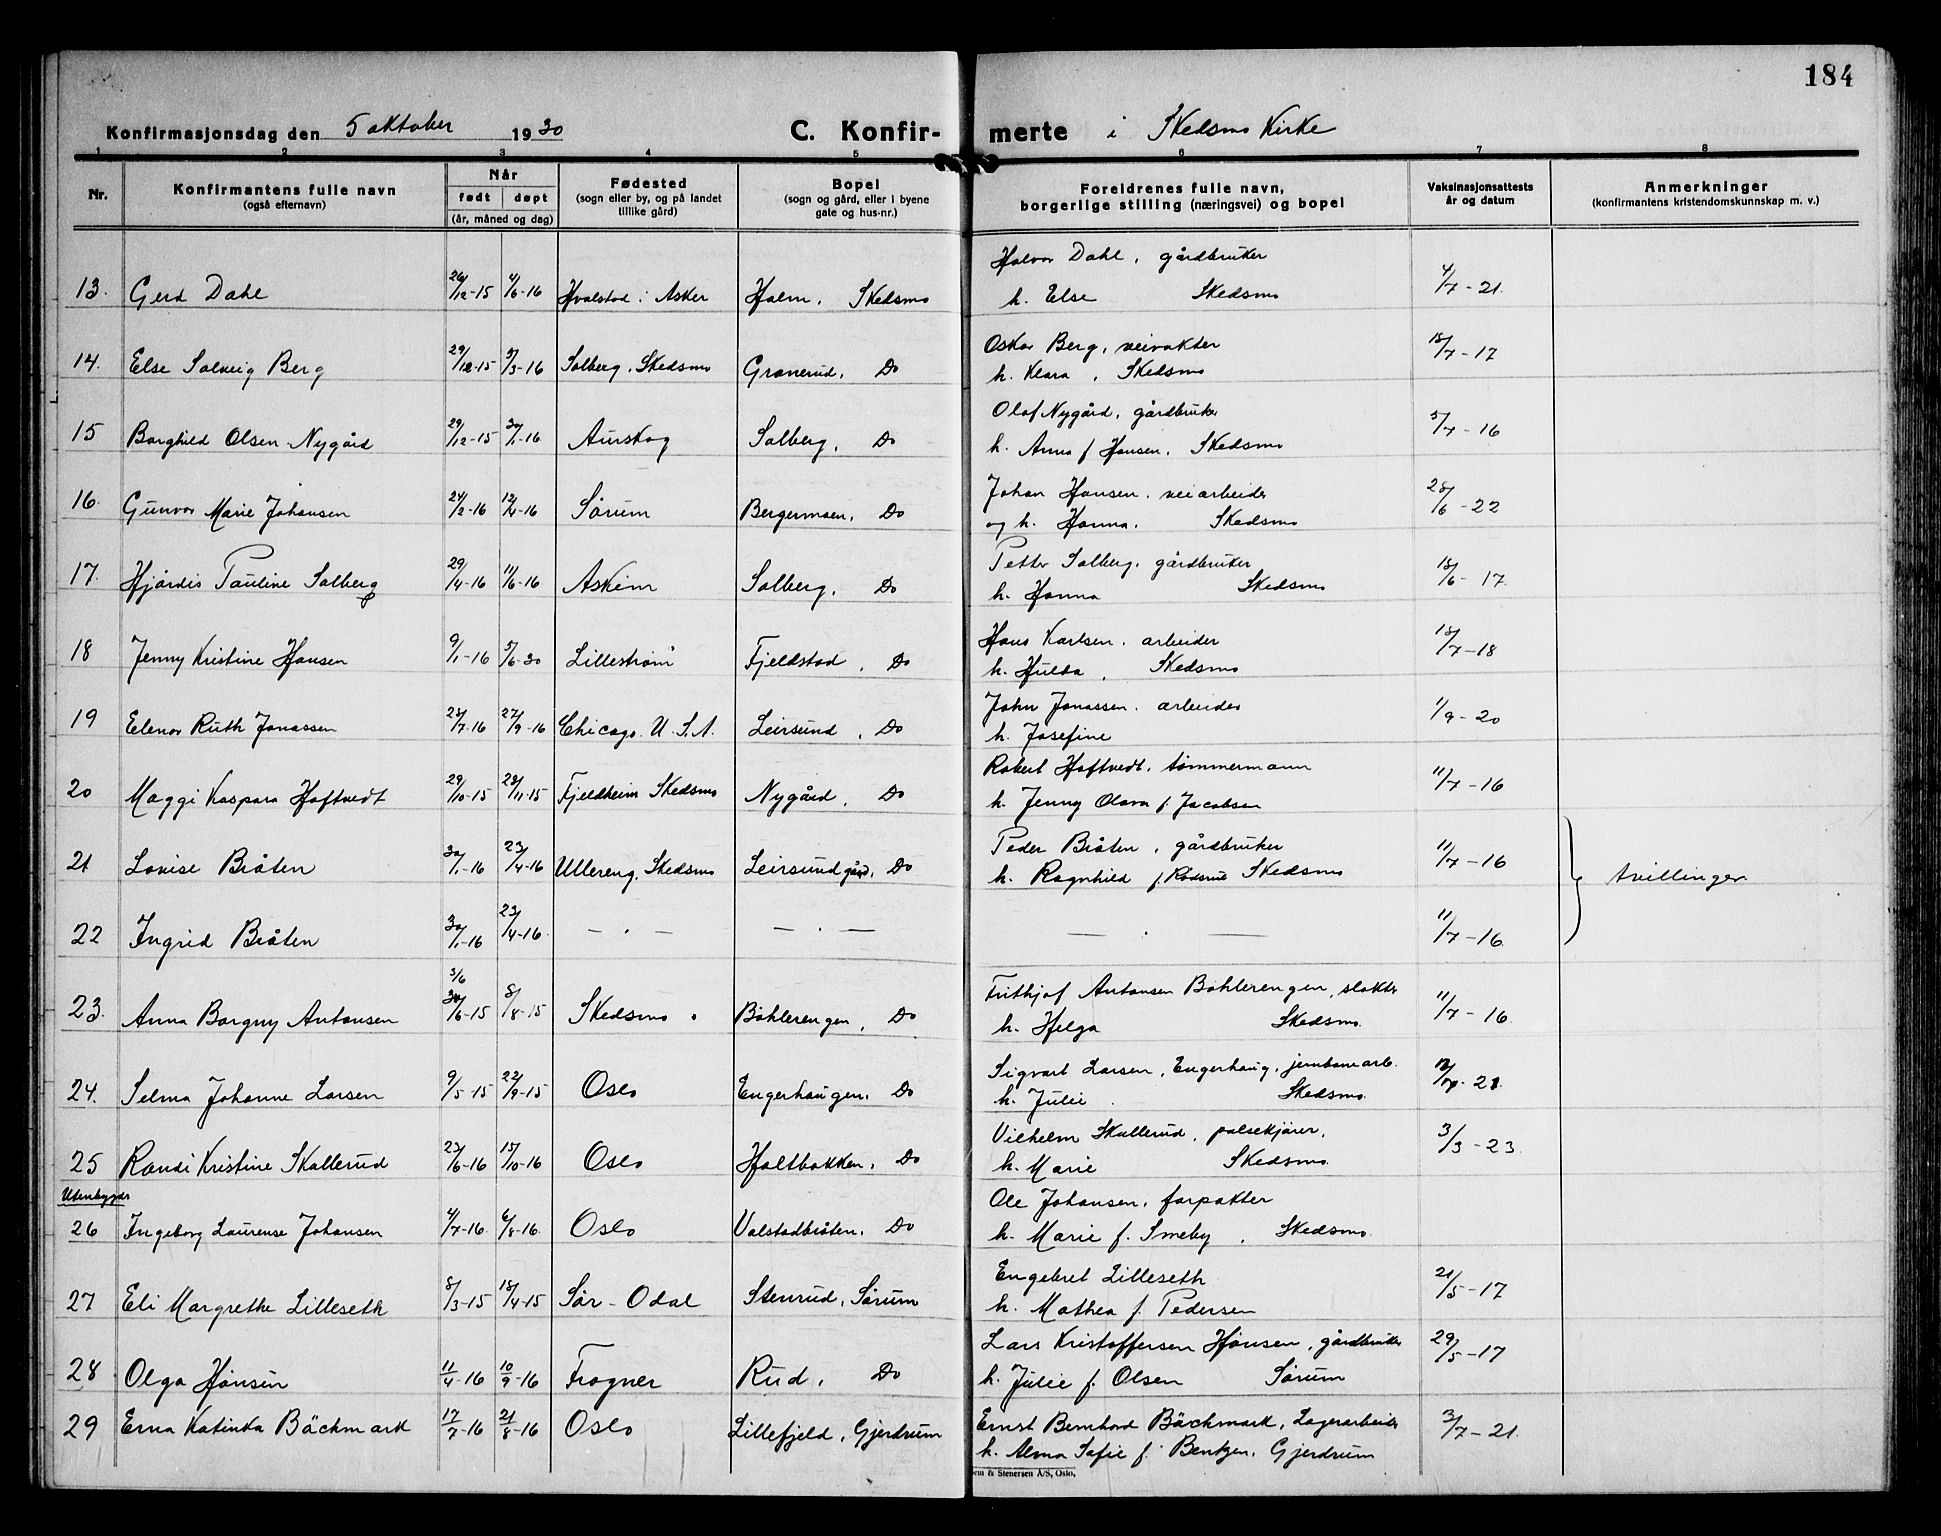 184
Konfirmasjonsdag den 5 oktober 1930 C. Konfir- merte i Skedsmo Kirke
1 2 3 4 5 6 7 8
Nr. Konfirmantens fulle navn (også efternavn) Når født døpt (år, måned og dag) Fødested (sogn eller by, og på landet tillike gård) Bopel (sogn og gård, eller i byene gate og hus-nr.) Foreldrenes fulle navn, borgerlige stilling (næringsvei) og bopel Vaksinasjonsattests år og datum Anmerkninger (konfirmantens kristendomskunnskap m. v.)
Halvor Dahl, gårdbruker
13. Gerd Dahl 26/12-15 4/6-16 Hvalstad i Asker Holm, Skedsmo h. Else Skedsmo 4/7-21.
Oskar Berg, veivokter
14. Else Solveig Berg 29/12-15 5/3-16 Solberg, Skedsmo Granerud, Do h. Klara, Skedsmo 18/7-17
Olaf Nygård, gårdbruker
15 Borghild Olsen-Nygård 29/12-15 30/1-16 Aurskog Solberg, Do h. Anna f Hansen, Skedsmo 5/7-16
Johan Hansen, veiarbeider
16. Gunvor Marie Johansen 24/2-16 12/4-16 Sørum Bergermoen, Do og h. Hanna. Skedsmo 28/6-22
Petter Solberg, gårdbruker
17. Hjørdis Pauline Solberg 29/4-16 11/6-16 Askim Solberg, Do h. Hanna Skedsmo 18/6-17.
Hans Karlsen, arbeider
18 Jenny Kristine Hansen 9/1-16 5/6-30 Lillestrøm Fjeldstad, Do h. Hulda, Skedsmo 18/7-18
John Jonassen, arbeider
19 Elenor Ruth Jonassen 28/7-16 27/9-16 Chicago. U.S.A. Leirsund, Do h. Josefine 1/9-20
Robert Hoftvedt, tømmermann
20 Maggi Kaspara Hoftvedt 29/10-15 28/11-15 Fjeldheim Skedsmo Nygård, Do h. Jenny Olava f. Jacobsen 11/7-16
Peder Bråten, gårdbruker
21 Lovise Bråten 30/1-16 23/4-16 Ullereng, Skedsmo Leirsund gård, Do h. Ragnhild f. Skedsmo 11/7-16 tvillinger
22 Ingrid Bråten 30/1-16 23/4-16 — . — — . — — . — 11/7-16.
3/6
Frithjof Antonsen Bøhlerengen, slakter
23. Anna Borgny Antonsen 30/6-15 8/8-15 Skedsmo Bøhlerengen, Do h. Helga Skedsmo. 11/7-16.
Sigvart Larsen, Engerhaug, jernbanearb.
24. Selma Johanne Larsen 9/5-15 22/9-15 Oslo Engerhaugen, Do h. Julie. Skedsmo.
Vilhelm Skallerud, pølsekjører,
25 Randi Kristine Skallerud 23/6-16 15/10-16 Oslo Holtbakken, Do h. Marie Skedsmo. 3/3-23.
Utenbygds
Ole Johansen, forpakter
26 Ingeborg Laurense Johansen 4/7-16. 6/8-16. Oslo Valstadbråten, Do h. Marie f. Smeby, Skedsmo.
Engebret Lilleseth
27 Eli Margrethe Lilleseth 8/3-15 18/4-15 Sør-Odal Stenrud, Sørum h. Mathea f. Pedersen 21/5-17
Lars Kristoffersen Hønsen, gårdbruker
28 Olga Hønsen 11/4-16 10/9-16 Frogner Rud, Do h. Julie f. Olsen Sørum 29/5-17
29 Erna Katinka Bäckmark 17/7-16 21/8-16 Oslo Lillefjeld, Gjerdrum Ernst Bernhard Bäckmark, Lagerarbeider 3/7-21.
h. Alma Sofie f. Bentzen, Gjerdrum
em & Stenersen A/S, Oslo.